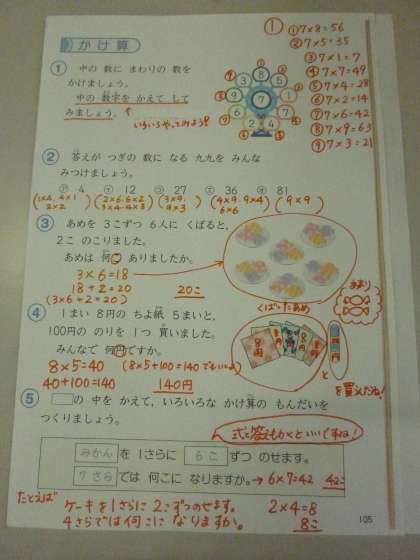 かけ算
① 中の 数に まわりの 数を
かけましょう。
中の 数字を かえて して
みましょう。
いろいろやってみよう!
7
8
5
1
7
4
2
6
9
3
①
①7×8=56
②7×5=35
③7×1=7
④7×7=49
⑤7×4=28
⑥7×2=14
⑦7×6=42
⑧7×9=63
⑨7×3=21
② 答えが つぎの 数に なる 九九を みんな
みつけましょう。
㋐ 4 ㋑ 12 ㋒ 27 ㋓ 36 ㋔ 81
(1×4. 4×1 2×2)
(2×6. 6×2 3×4. 4×3)
(3×9. 9×3)
(4×9. 9×4 6×6)
(9×9)
③ あめを 3こずつ 6人に くばると、
2こ のこりました。
あめは 何こ ありましたか。
3×6=18
18+2=20
(3×6+2=20)
20こ
くばったあめ
あまり
④ 1まい 8円の ちよ紙 5まいと、
100円の のりを 1つ 買いました。
みんなで 何円ですか。
8×5=40 (8×5+100=140でもいいよ)
40+100=140
140円
と
を買ったね!
⑤ □の 中を かえて、いろいろな かけ算の もんだいを
つくりましょう。
式と答えもかくといいですね!
みかん を 1さらに 6こ ずつ のせます。
7さら では 何こに なりますか。→ 6×7=42 42こ
たとえば
ケーキを1さらに2こずつのせます。
4さらでは何こになりますか。
2×4=8
8こ
105